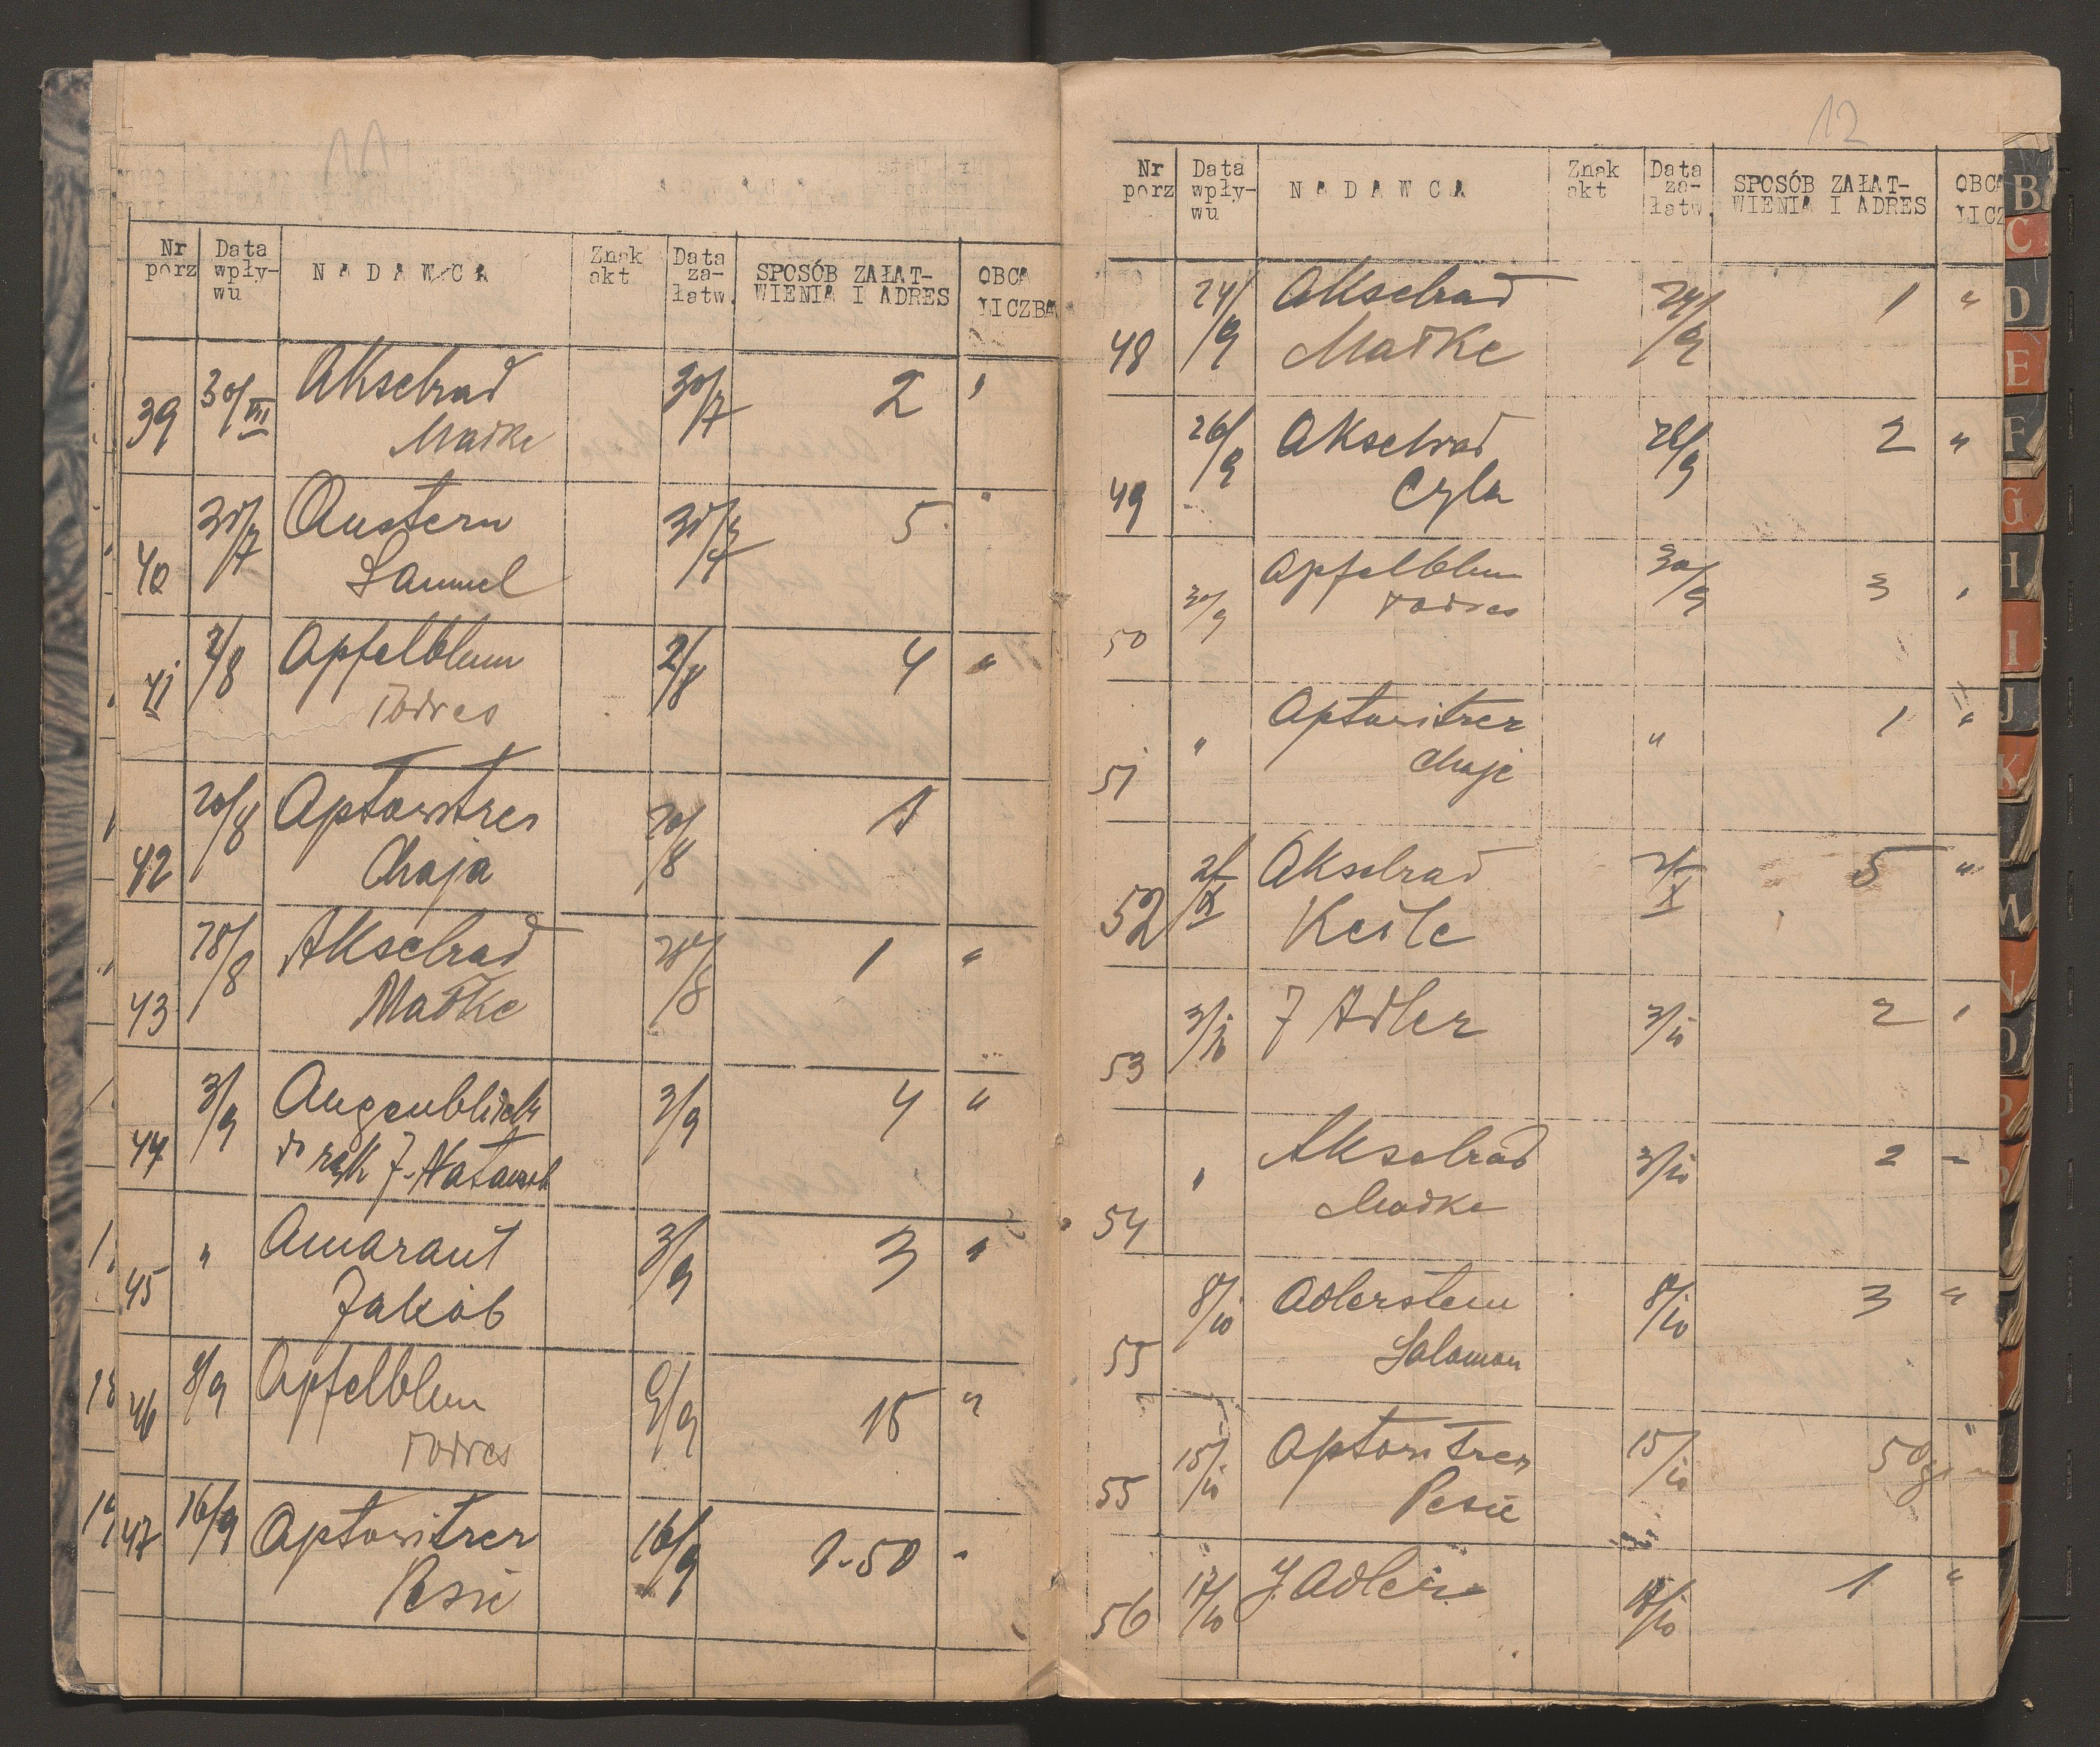 11
Nr porz
Data wpły-wu
NADAWCA
Znak akt
Data za-łatw.
SPOSÓB ZAŁAT-WIENIA I ADRES
OBCA LICZBA
39 30/VII Akselrad 30/7 2 "
Matke
40 30/7 Austern 30/7 5 "
Samuel
41 2/8 Apfelblum 2/8 4 "
Todres
42 20/8 Aptowitzer 20/8 1
Chaja
43 28/8 Akselrad 28/8 1 "
Matke
44 3/9 Augenblick 3/9 4 "
J.
45 " Amarant 3/9 3 "
Jakób
46 9/9 Apfelblum 9/9 15 "
Todres
47 16/9 Aptowitzer 16/9 1-50 "
Pesie
12
Nr porz
Data wpły-wu
NADAWCA
Znak akt
Data za-łatw.
SPOSÓB ZAŁAT-WIENIA I ADRES
OBCA
LICZ
48 24/9 Akselrad 24/9 1 "
Matke
49 26/9 Akselrad 26/9 2 "
Cyla
50 30/9 Apfelblum 30/9 3 "
Todres
51 " Aptowitzer " 1 "
Chaje
52 2/X Akselrad 2/X 5 "
Keile
53 3/10 J Adler 3/10 2 "
54 " Akselrad 3/10 2 "
Matke
55 8/10 Adlerstein 8/10 3 "
Salomon
55 15/10 Aptowitzer 15/10 50 gr "
Pesie
56 17/10 J. Adler 17/10 1 "
B
C
D
E
F
G
H
I
J
K
M
N
O
P